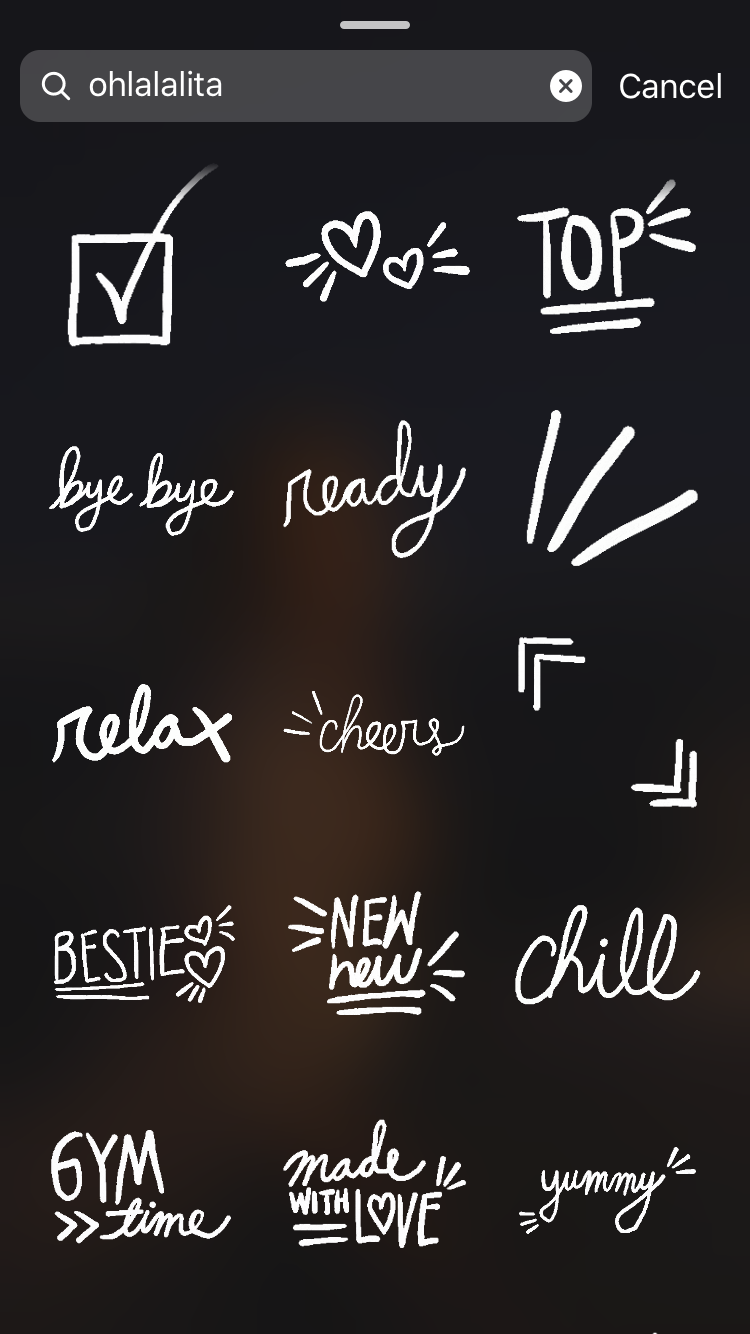 ohlalalita
Cancel
TOP
bye bye
ready
relax
cheers
BESTIE
NEW
new
chill
GYM
>> time
made
WITH LOVE
yummy